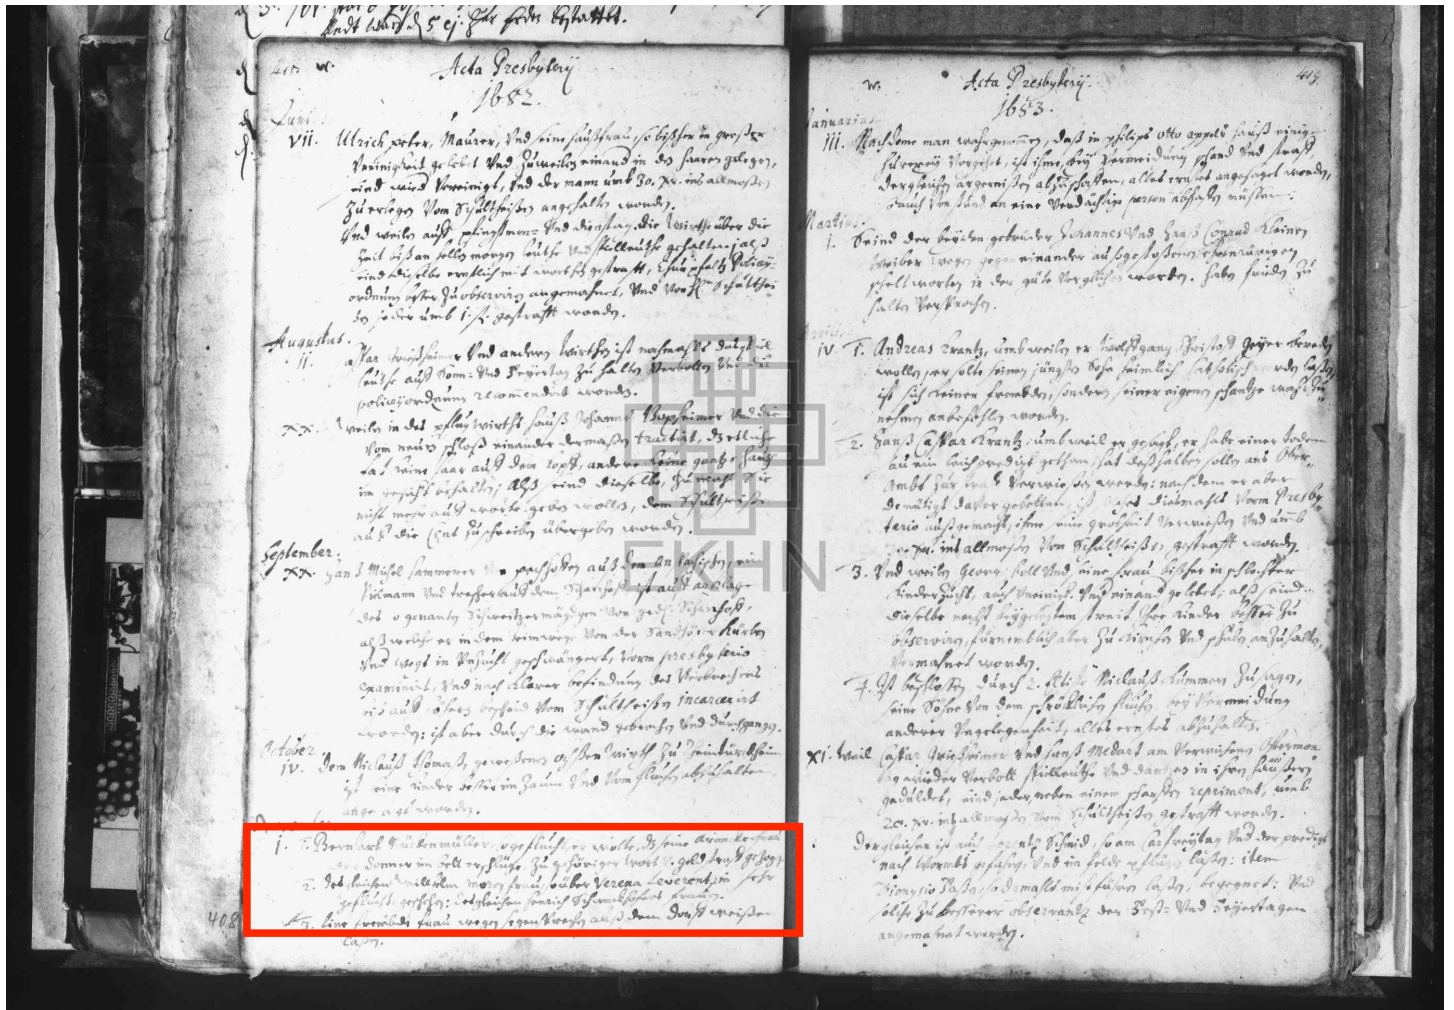 zur Erden bestattet.
Acta Presbyterij
1682.
Junius
VII. Ulrich peter, Maurer, Und seine haußfrau so bißher in großer
Uneinigkeit gelebet Und Zuweilen einand in den haaren gelegen,
sind wied Vereinigt, Und der mann umb 30. xr. ins allmoßen
Zu erlegen Vom Schultheißen angehalten worden.
Und weilen auff pfingstmon- Und dienstag die Wirthe über die
Zeit biß an hellen morgen leuthe Und spilleuthe gehalten, alß
sind dieselbe ernstlich mit worten gestrafft, Churpfaltz Policey-
ordnung besser Zu observiren angemahnet, Und Schulthei-
ßen jeder umb 1. fl. gestrafft worden.
Augustus.
II. Und andern Wirthen ist nachmahls
leuthe auff Sonn- Und Feyertag Zu halten Verbotten Und die
policeyordnung recommendirt worden.
XX. Weilen in des pflugwirths hauß Johannes Und die
Vom neuen schloß einander dermaßen tractirt, dz etliche
keine haar auff dem Kopff, andere keine gantze haut
im gesicht behalten; Alß sind dieselbe,
nicht mehr gute worte geben wollen, dem Schultheißen
auff die Cent Zuschreiben übergeben worden.
September.
XX. Hanß Michel Hammerer
auß dem Scharhoff ist auff anklage
des ogenanten Schweitzermägdgen Von Scharhoff,
alß welche er in dem heimwege Von der Sandhöfer Kürben
Und wegs in Unzucht geschwängert, Vorm presbyterio
examinirt, Und nach klarer befindung des Verbrechens
biß auff bescheid Vom Schultheißen incarcerirt
worden: ist aber durch die wand gebrochen Und durchgangen.
October
IV. Dem Niclauß Thomaß, gewesenen ochßen wirth Zu
ist seine kinder besser im Zaum Und Vom fluchen abzuhalten
angesagt worden.
I. 1. Bernhart Küllenmüller, so gefluchet er wolte, dz seine
donner in Zell erschlüge, Zu gehöriger Wort- v. geld straff gezogen.
2. desgleichen Wilhelm frau, so über Verena Leverentzin sehr
geflucht, geschehen: desgleichen Henrich frauen.
3. Eine frembde frau wegen segensprechen auß dem dorff weißen
laßen.
408
419
Acta Presbyterij.
1683.
Januarius
III. Nachdeme man wahrgenommen, daß in philips Otto appels hauß einige
hurerey Vorgehet, ist ihme, bey Vermeidung schand Und straff,
dergleichen ärgernißen abzuschaffen, alles ernstes angesaget worden,
auch Von stund an eine Verdächtige person abschaffen müßen.
Martius
I. Seind der beyden gebrüder Johannes Und Hanß Conrad Kleinen
Weiber wegen gegen einander außgestoßenen ehrenrürigen
scheltworten in der güte Verglichen worden. haben frieden Zu
halten Versprochen.
IV. 1. Andreas Krantz, umb weilen er Wolffgang Christoff Geyer bereden
wollen, er solte seinen jüngsten Sohn heimlich Catholisch werden laßen,
ist sich keiner frembden, sondern seiner eigenen schantze wahrzu-
nehmen anbefohlen worden.
2. Hanß Caspar Krantz, umb weil er gesagt, er habe einer todten
Sau ein leichpredigt gethan, hat deßhalben sollen ans Ober-
Ambt Zur straff Verwießen werden: nachdem er aber
demütigst davor gebetten, ist dießmahls Vorm Presby-
terio außgemacht, ihme seine grobheit Verwießen Und umb
xr. ins allmoßen Vom Schultheißen gestrafft worden.
3. Und weilen Georg Noll Und seine frau bißher in schlechter
Kinderzucht, auch Uneinig Und einand gelebet; alß sind
dieselbe nechst beygelegtem streit ihre Kinder besser Zu
observiren, fürnemblich aber Zu Kirchen Und schulen anzuhalten,
Vermahnet worden.
4. Ist beschloßen durch 2. Eltiste Niclauß Kummen Zusagen,
seine Söhne Von dem schröcklichen fluchen, bey Vermeidung
anderer Ungelegenheit, alles ernstes abzuhalten.
XI. Weil Caspar Grießheimer Und Hanß Medart am Verwichenen Ostermon-
tag wieder Verbott spielleuthe Und dantzen in ihren häußern
geduldet, sind jeder, neben einem scharffen reprimant, umb
20. xr. ins allmoßen Vom Schultheißen gestrafft worden.
Dergleichen ist auch Lorentz Schmid, so am Carfreytag Und der predigt
nach Wormbs gefahren, Und im felde pflügen laßen: item
Dionysio so damahls mist führen laßen, begegnet: Und
solche Zu beßerer observantz der Fest- Und Feyertagen
angemahnet worden.
EKHN